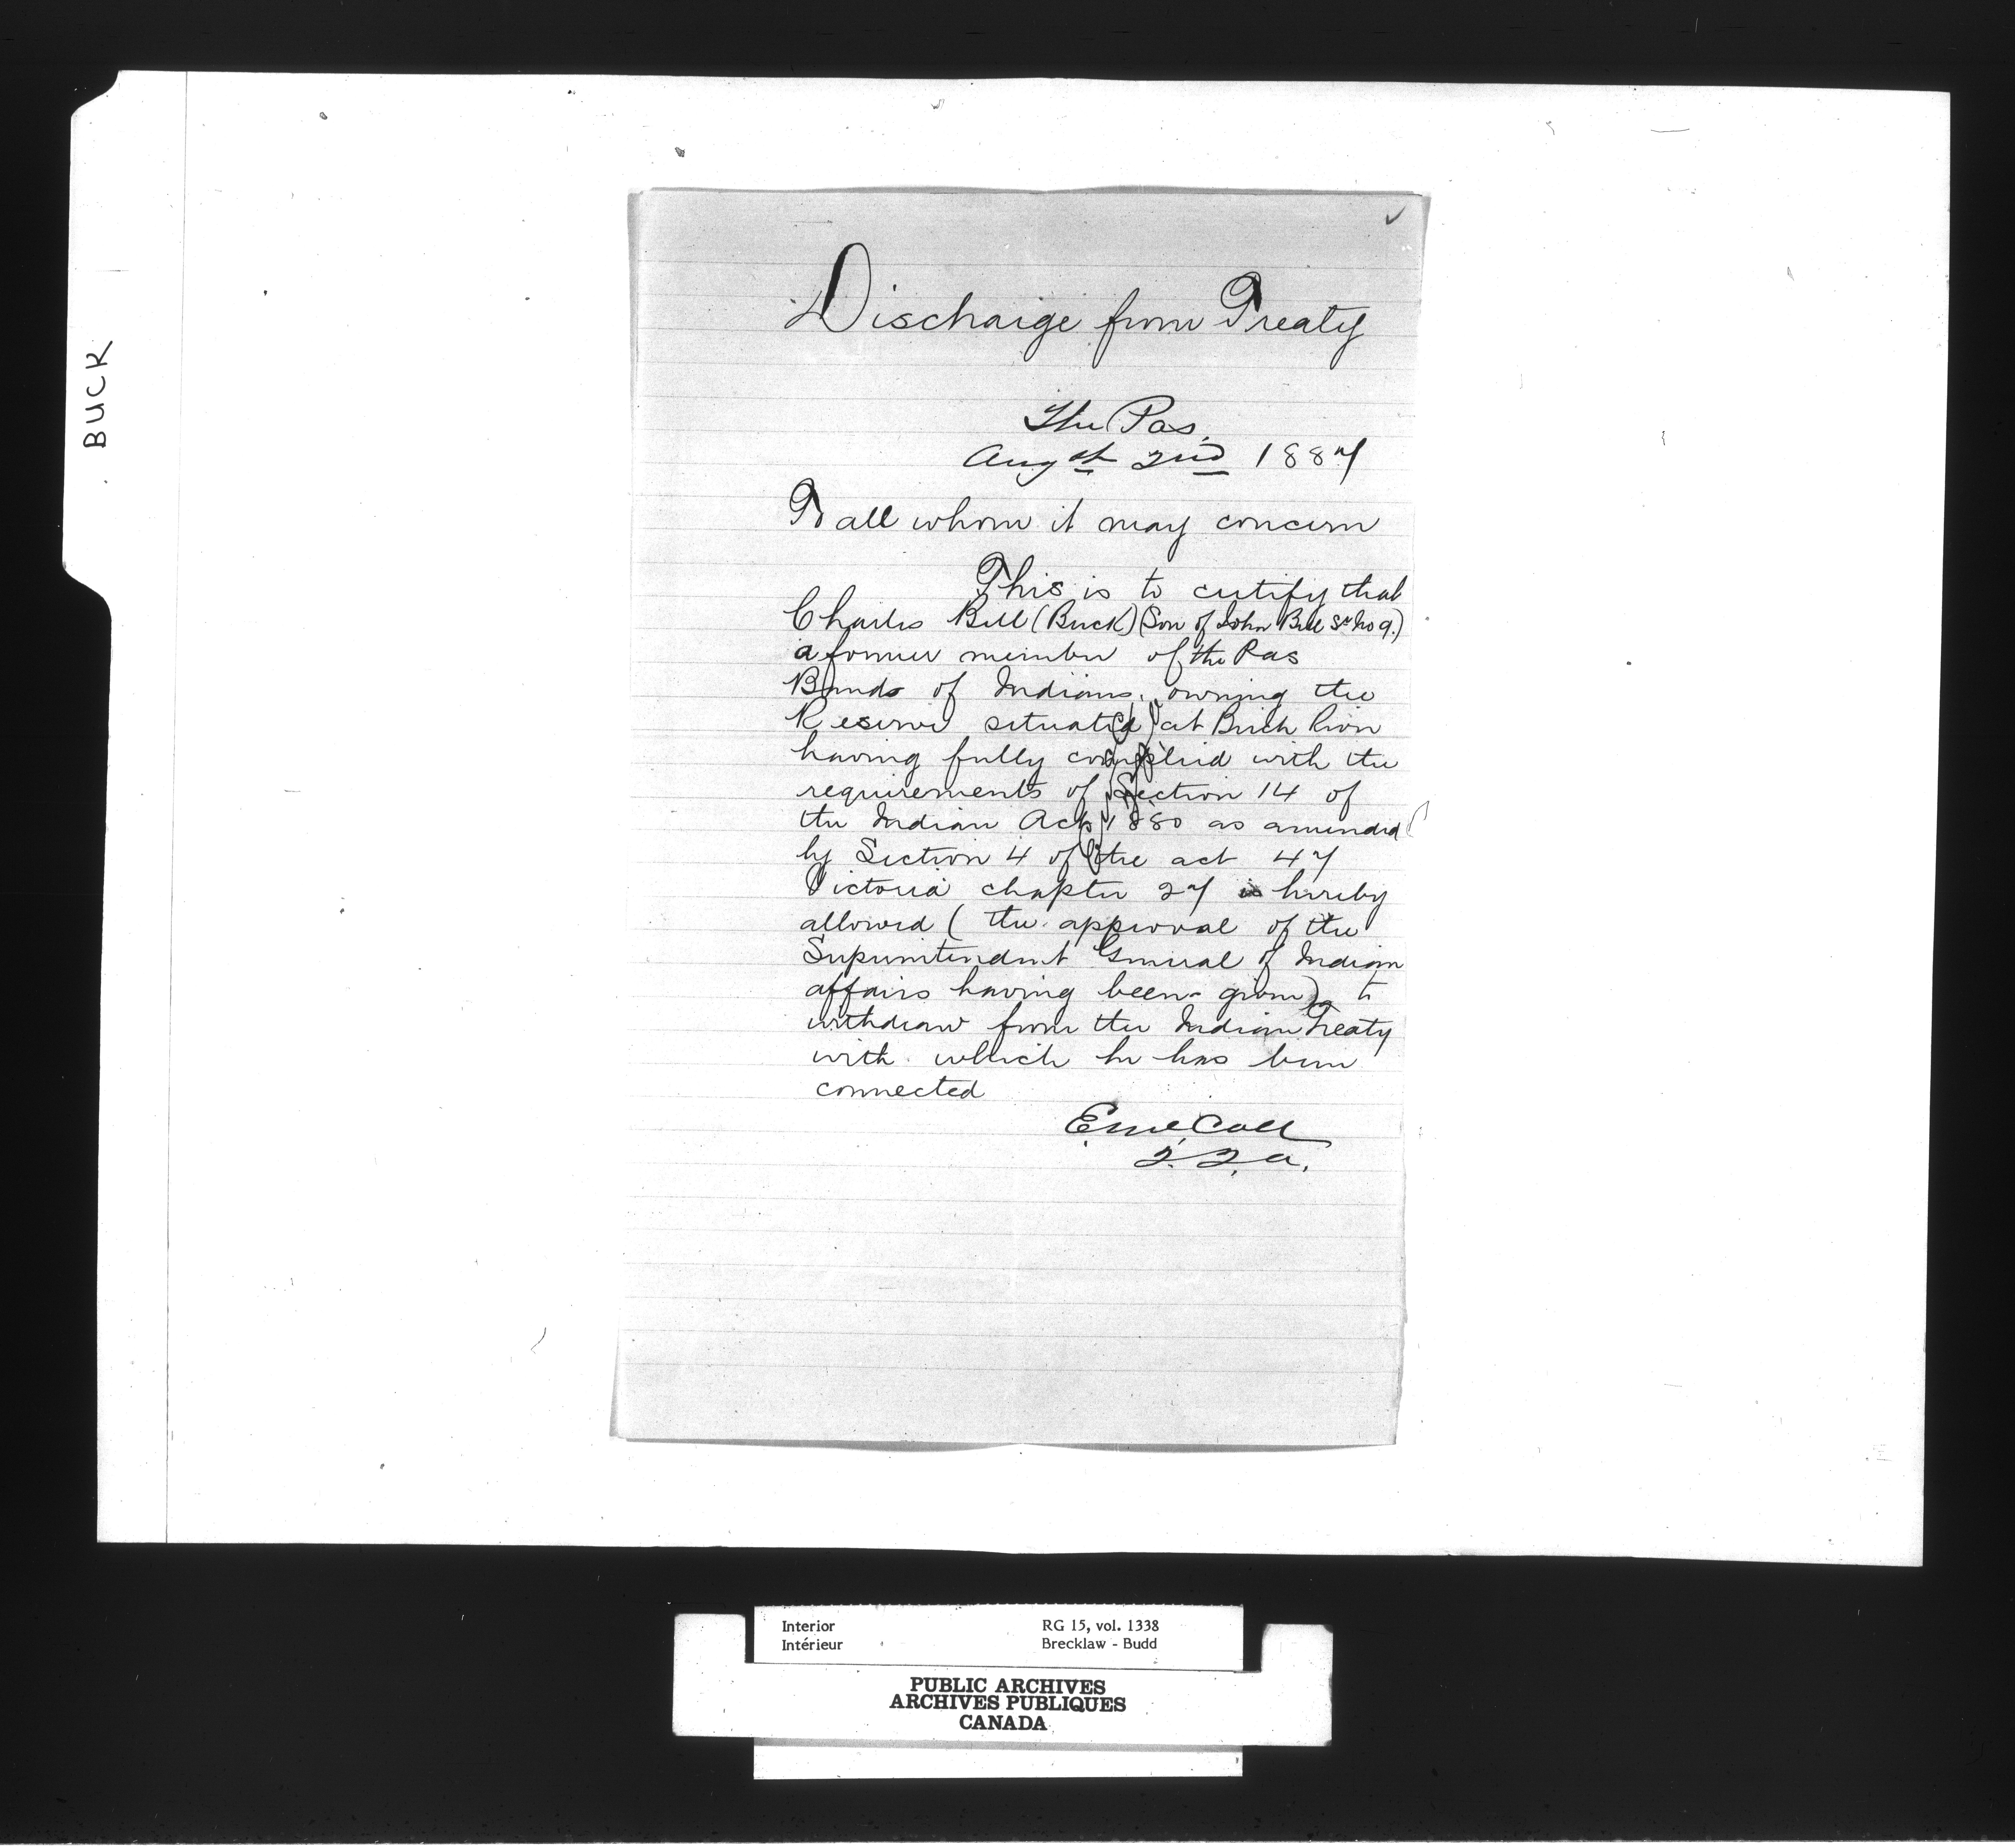 BUCK
Discharge from Treaty
The Pas.
Augst 2nd 1887
To all whom it may concern
This is to certify that
Charles Bell (Buck) (Son of John Bell Sr No 9.)
a former member of the Pas
Bands of Indians, owning the
Reserve situated at Birch River
having fully complied with the
requirements of Section 14 of
the Indian Act, 1880 as amended
by Section 4 of the act 47
Victoria chapter 27 is hereby
allowed (the approval of the
Superintendent General of Indian
affairs having been given) to
withdraw from the Indian Treaty
with which he has been
connected
E McColl
Interior
Intérieur
RG 15, vol. 1338
Brecklaw - Budd
PUBLIC ARCHIVES
ARCHIVES PUBLIQUES
CANADA